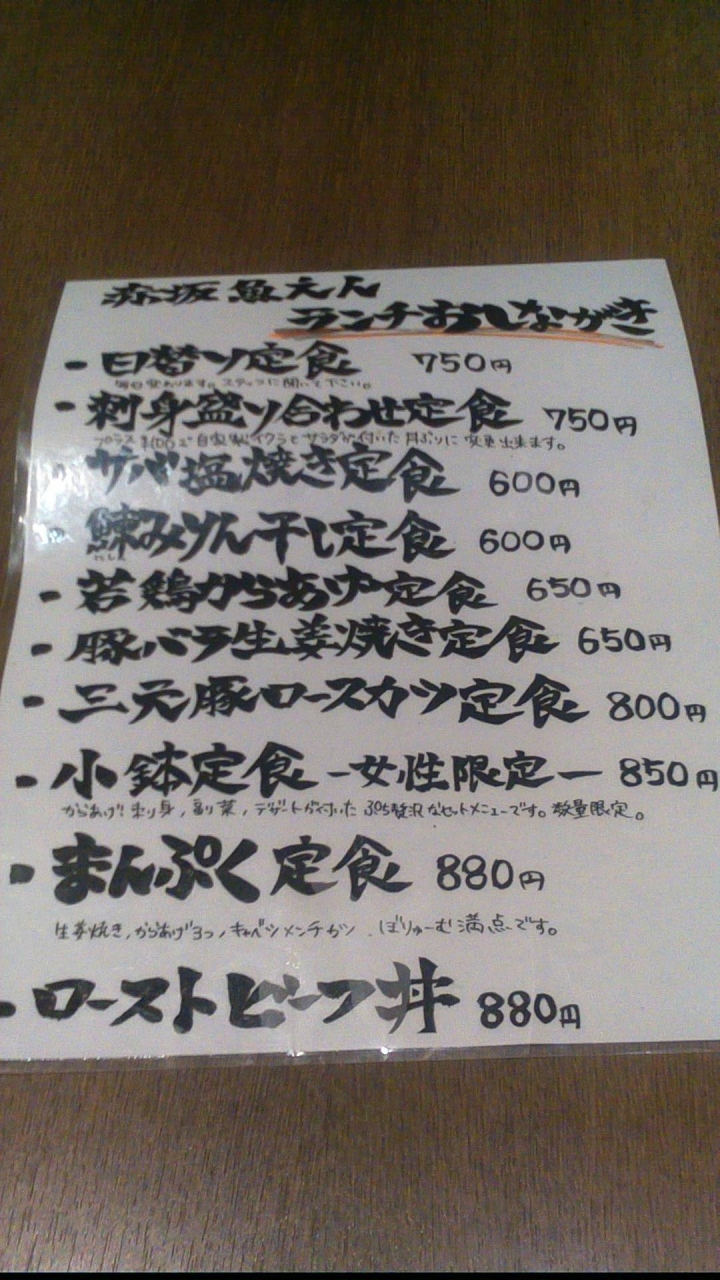 赤坂魚えん
ランチおしながき
日替り定食 750円
毎日変わります。スタッフに聞いて下さい。
刺身盛り合わせ定食 750円
プラス¥100で自家製イクラとサラダが付いた丼ぶりに変更出来ます。
サバ塩焼き定食 600円
鰊みりん干し定食 600円
にしん
若鶏からあげ定食 650円
豚バラ生姜焼き定食 650円
三元豚ロースカツ定食 800円
小鉢定食 -女性限定- 850円
からあげ、刺り身、副菜、デザートが付いたぷち贅沢なセットメニューです。数量限定。
まんぷく定食 880円
生姜焼き、からあげ3つ、キャベツメンチカツ ぼりゅーむ満点です。
ローストビーフ丼 880円